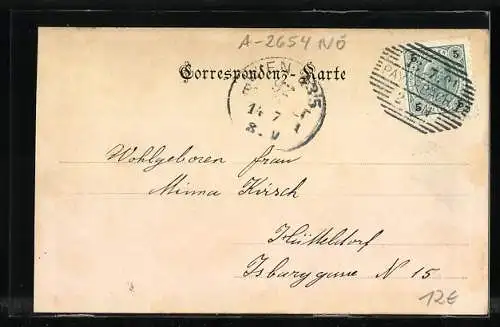 A-2654 NÖ
Correspondenz-Karte
WIEN 235
14 7
8. V
PAYERBACH
5
5
Wohlgeboren Frau
Minna Kirsch
Hütteldorf
Isbarygasse N 15
12€